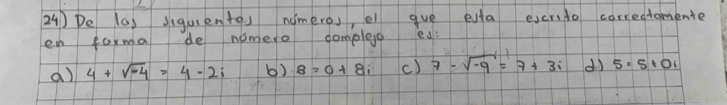 24) De los siguientes números, el que esta escrito correctamente
en forma de número complejo es:
a) 4 + √-4 = 4 - 2i b) 8 = 0 + 8i c) 7 - √-9 = 7 + 3i d) 5 = 5 + 0i